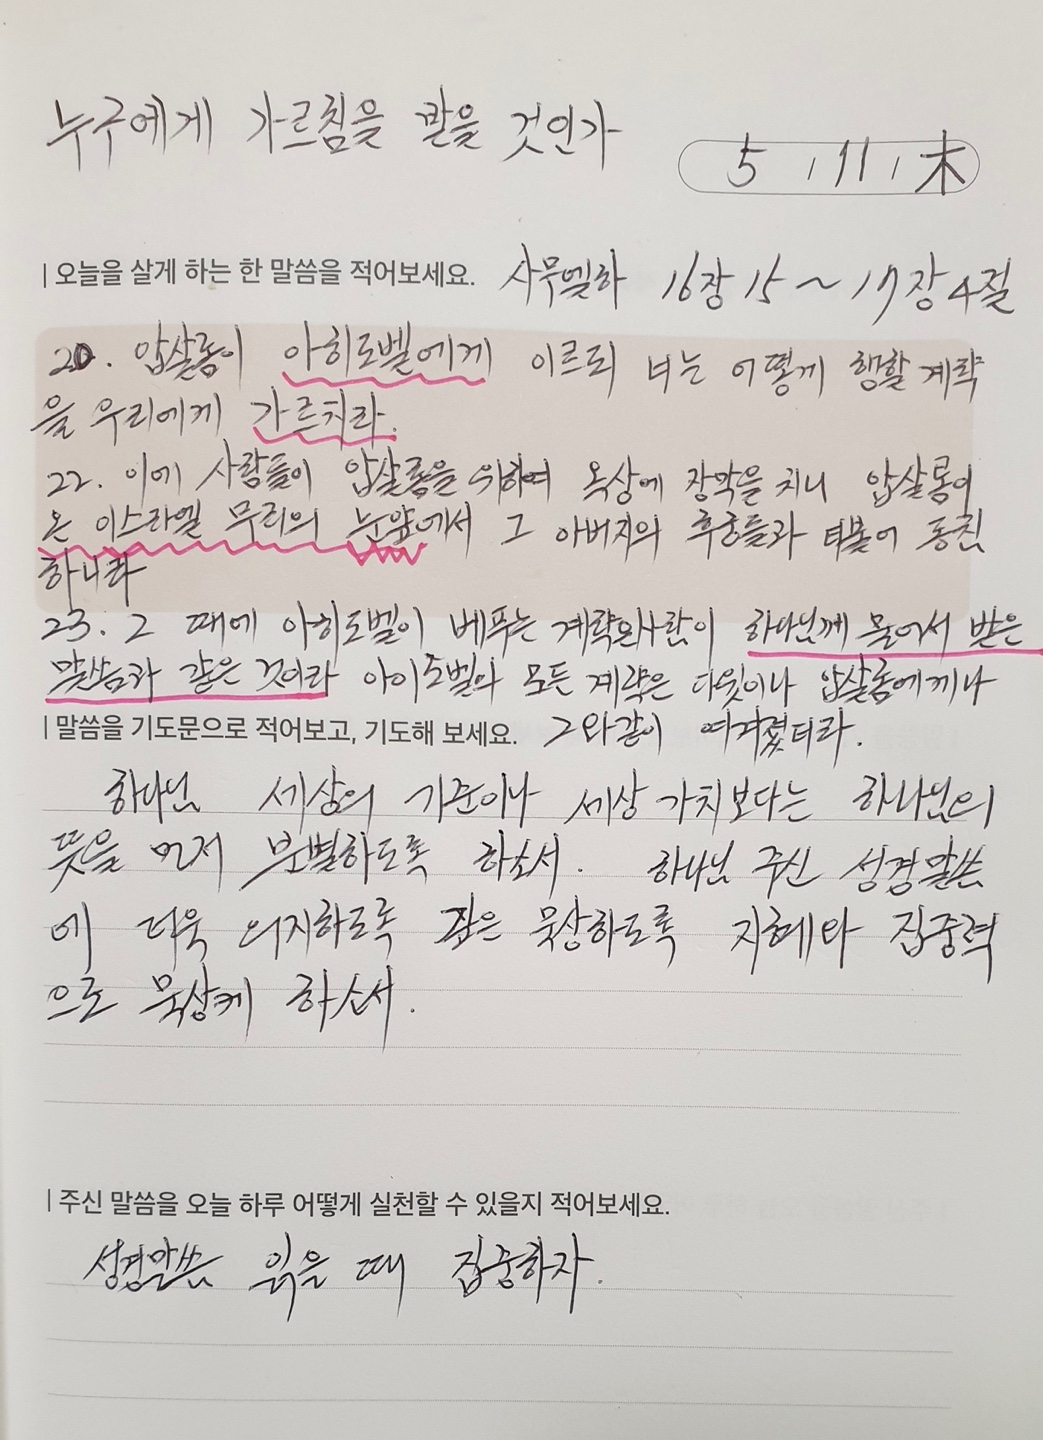 누구에게 가르침을 받을 것인가
5 , 11 , 木
| 오늘을 살게 하는 한 말씀을 적어보세요. 사무엘하 16장 15 ~ 17장 4절
20. 압살롬이 아히도벨에게 이르되 너는 어떻게 행할 계략
을 우리에게 가르치라.
22. 이에 사람들이 압살롬을 위하여 옥상에 장막을 치니 압살롬이
온 이스라엘 무리의 눈앞에서 그 아버지의 후궁들과 더불어 동침
하니라
23. 그 때에 아히도벨이 베푸는 계략은 사람이 하나님께 물어서 받은
말씀과 같은 것이라 아히도벨의 모든 계략은 다윗이나 압살롬에게나
그와같이 여겨졌더라.
| 말씀을 기도문으로 적어보고, 기도해 보세요.
하나님 세상의 기준이나 세상 가치보다는 하나님의
뜻을 먼저 분별하도록 하소서. 하나님 주신 성경말씀
에 더욱 의지하도록 깊은 묵상하도록 지혜와 집중력
으로 묵상케 하소서.
| 주신 말씀을 오늘 하루 어떻게 실천할 수 있을지 적어보세요.
성경말씀 읽을 때 집중하자.